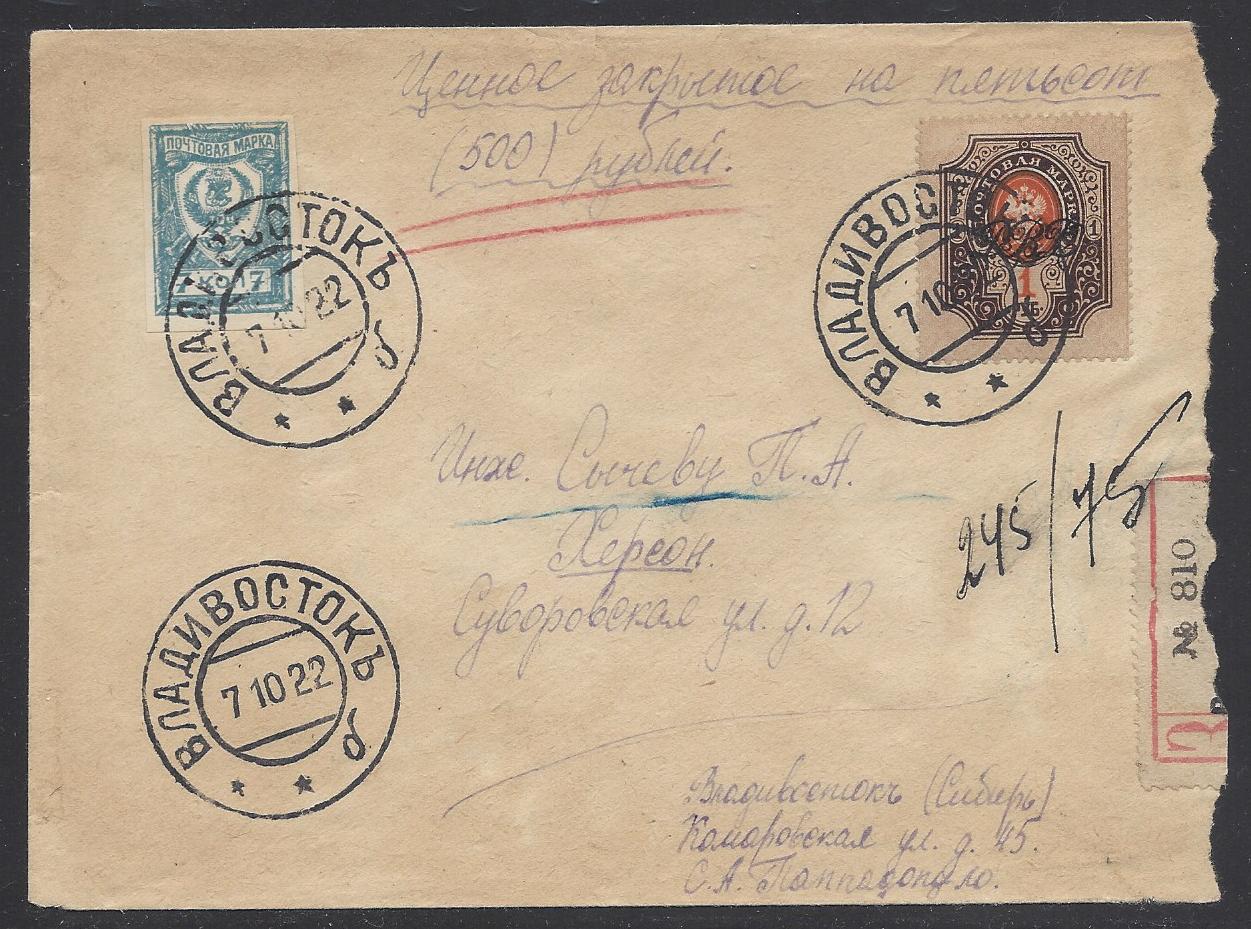 Ценное закрытое на пятьсот
(500) рублей.
ПОЧТОВАЯ МАРКА
7 КОП 7
ПОЧТОВАЯ МАРКА
1
1
РУБ.
ВЛАДИВОСТОКЪ
7 10 22
б
ВЛАДИВОСТОКЪ
7 10
б
Инже. Сычеву П. А.
Херсон.
Суворовская ул. д. 12
245/75
№ 810
З
ВЛАДИВОСТОКЪ
7 10 22
б
Владивостокъ (Сибирь)
Комаровская ул. д. 45.
С. А. Паппадопуло.